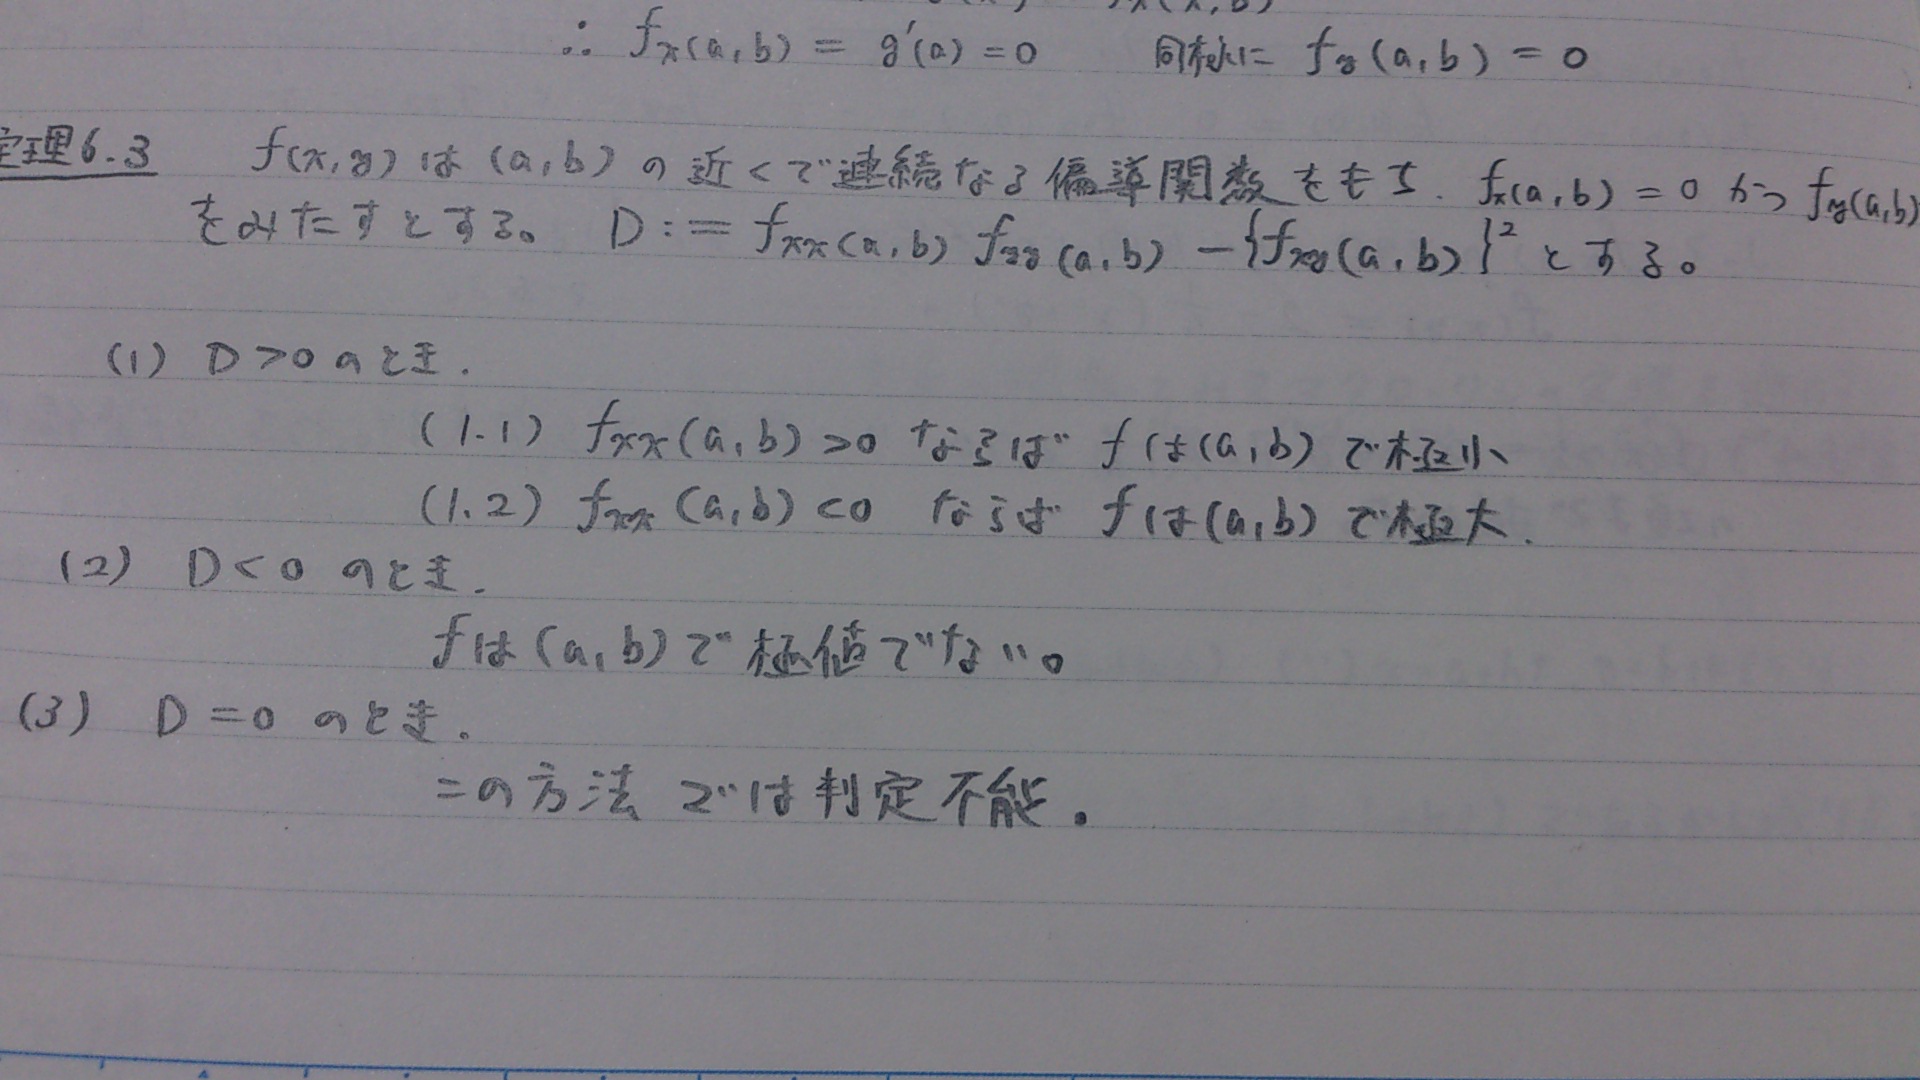 ∴ fx(a,b) = g'(a) = 0 同様に fy(a,b) = 0
定理6.3 f(x,y) は (a,b) の近くで連続なる偏導関数をもち. fx(a,b) = 0 かつ fy(a,b)
をみたすとする。 D := fxx(a,b) fyy(a,b) - {fxy(a,b)}² とする。
(1) D>0 のとき.
(1.1) fxx(a,b) >0 ならば fは(a,b) で極小
(1.2) fxx(a,b) <0 ならば fは(a,b) で極大.
(2) D<0 のとき.
fは(a,b)で極値でない。
(3) D=0 のとき.
この方法では判定不能.